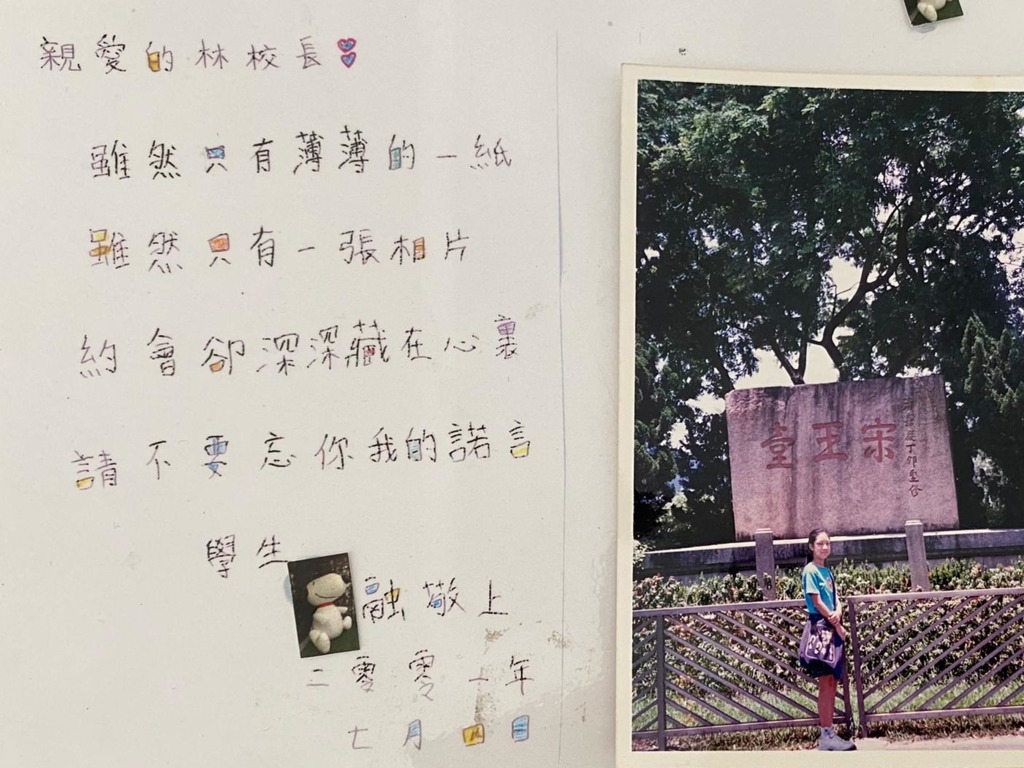 親愛的林校長
雖然只有薄薄的一紙
雖然只有一張相片
約會卻深深藏在心裏
請不要忘你我的諾言
學生
融敬上
二零零一年
七月四日
宋王臺
慶丁卯重修